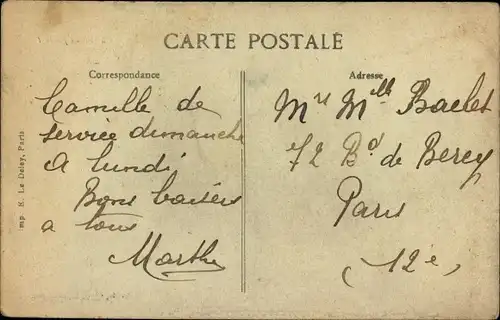 CARTE POSTALE
Correspondance
Camille de
service dimanche
A lundi
Bons baisers
a tous
Marthe
Adresse
Mre Mlle Baelet
72 Bd de Bercy
Paris
(12e)
Imp. E. Le Deley, Paris